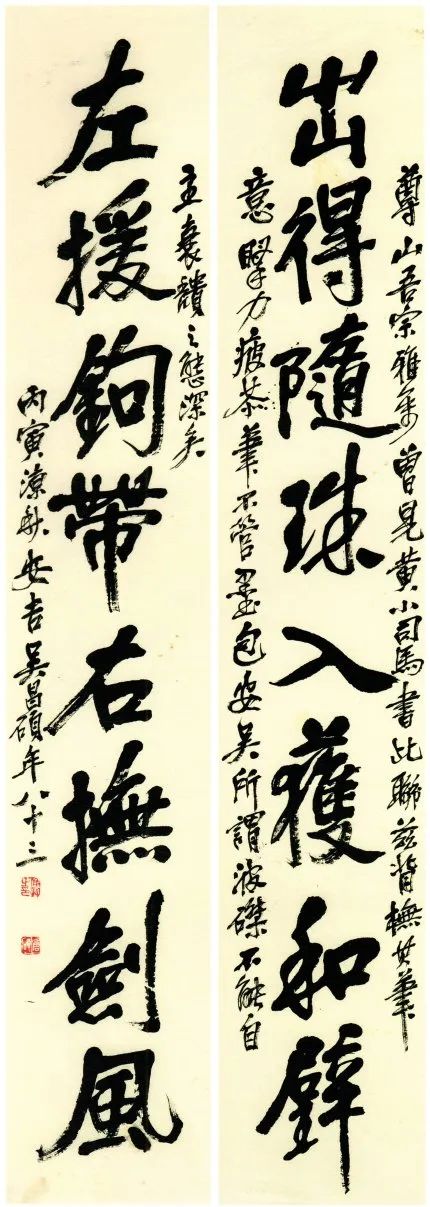 尊山吾宗雅令曾見黃小司馬書此聯茲背橅其筆
出得隨珠入獲和璧
意掔力疲苶筆不管墨包安吳所謂波磔不能自
主衰之態深矣
左援鉤帶右撫劍風
丙寅涼秋安吉吳昌碩年八十三